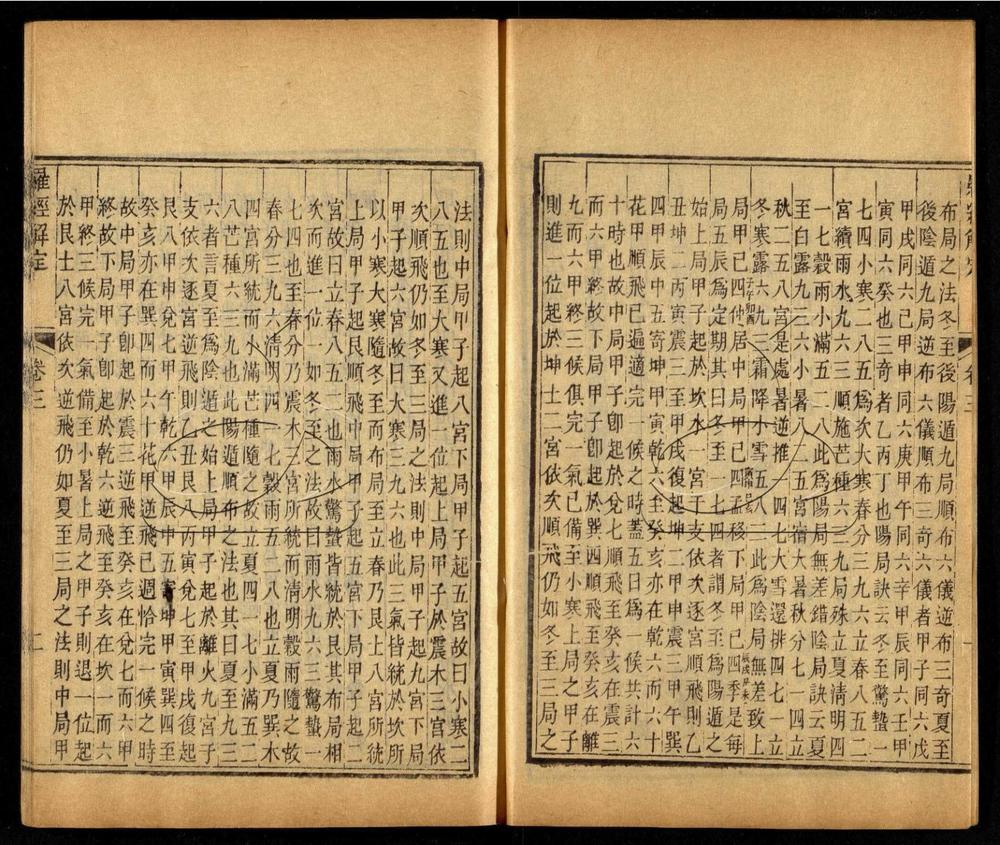 布局之法冬至後陽遁九局順布六儀逆布三奇夏至
後陰遁九局逆布六儀順布三奇六儀者甲子同六戊
甲戌同六己甲申同六庚甲午同六辛甲辰同六壬甲
寅同六癸也三奇者乙丙丁也陽局訣云冬至驚蟄一
七四小寒二八五爲次大寒春分三九六立春八五二
宮續雨水九六三順施芒種六三九局殊立夏清明四
一七穀雨小滿五二八此爲陽局無差錯陰局訣云夏
至白露九三六小暑八二五宮宿大暑秋分七一四立
秋二五八宮是處暑逆推一四七大雪還排四七一立
冬寒露六九三霜降小雪五八二此爲陰局無差致上
局甲己四仲居中局甲己四孟移下局甲己四季是每
始局辰爲定期其曰冬至一七四者謂冬至爲陽遁之
始上局甲子起於坎水一宮子丑坎一支依次逐宮順飛則乙
丑坤二丙寅震三至甲戌復起坤二甲申震三甲午巽
四甲辰中五寄坤甲寅乾六至癸亥亦在乾六而六十
花甲順飛已遍適完一候之時蓋五日爲一候共計六
十時也故中局甲子卽起於兌七順飛至癸亥在震三
而六甲終故下局甲子卽起於巽四順飛至癸亥在離
九而六甲終三候俱完一氣已備至小寒上局之甲子
則進一位起於坤土二宮依次順飛仍如冬至三局之
法則中局甲子起八宮下局甲子起五宮故曰小寒二
八五也至大寒又進一位起上局甲子於震木三宮依
次順飛仍如冬至三局之法則中局甲子起九宮下局
甲子起六宮故曰大寒三九六也此三氣皆統於坎所
以小寒大寒隨冬至而布局至立春乃艮土八宮所統
上局甲子起艮順飛中局甲子起五宮下局甲子起二
宮故曰立春八五二也雨水驚蟄皆統於艮其布局相
次而進一位一如冬至之法故曰雨水九六三驚蟄一
七四也至春分乃震木三宮所統而清明穀雨隨之故
春分三九六清明四一七穀雨五二八也立夏乃巽木
四宮所統而小滿芒種隨之故立夏四一七小滿五二
八芒種六三九也此陽遁順布之法也其曰夏至九三
六者言夏至爲陰遁之始上局甲子起於離火九宮子
支依次逐宮逆飛則乙丑艮八丙寅兌七至甲戌復起
艮八甲申兌七甲午乾六甲辰中五寄坤甲寅巽四至
癸亥亦在巽四而六十花甲逆飛已週恰完一候之時
故中局甲子卽起於震三逆飛至癸亥在兌七而六甲
終故下局甲子卽起於乾六逆飛至癸亥在坎一而六
甲終三候完一氣備至小暑上局之甲子則退一位起
於艮土八宮依次逆飛仍如夏至三局之法則中局甲
羅經解定
卷三
二